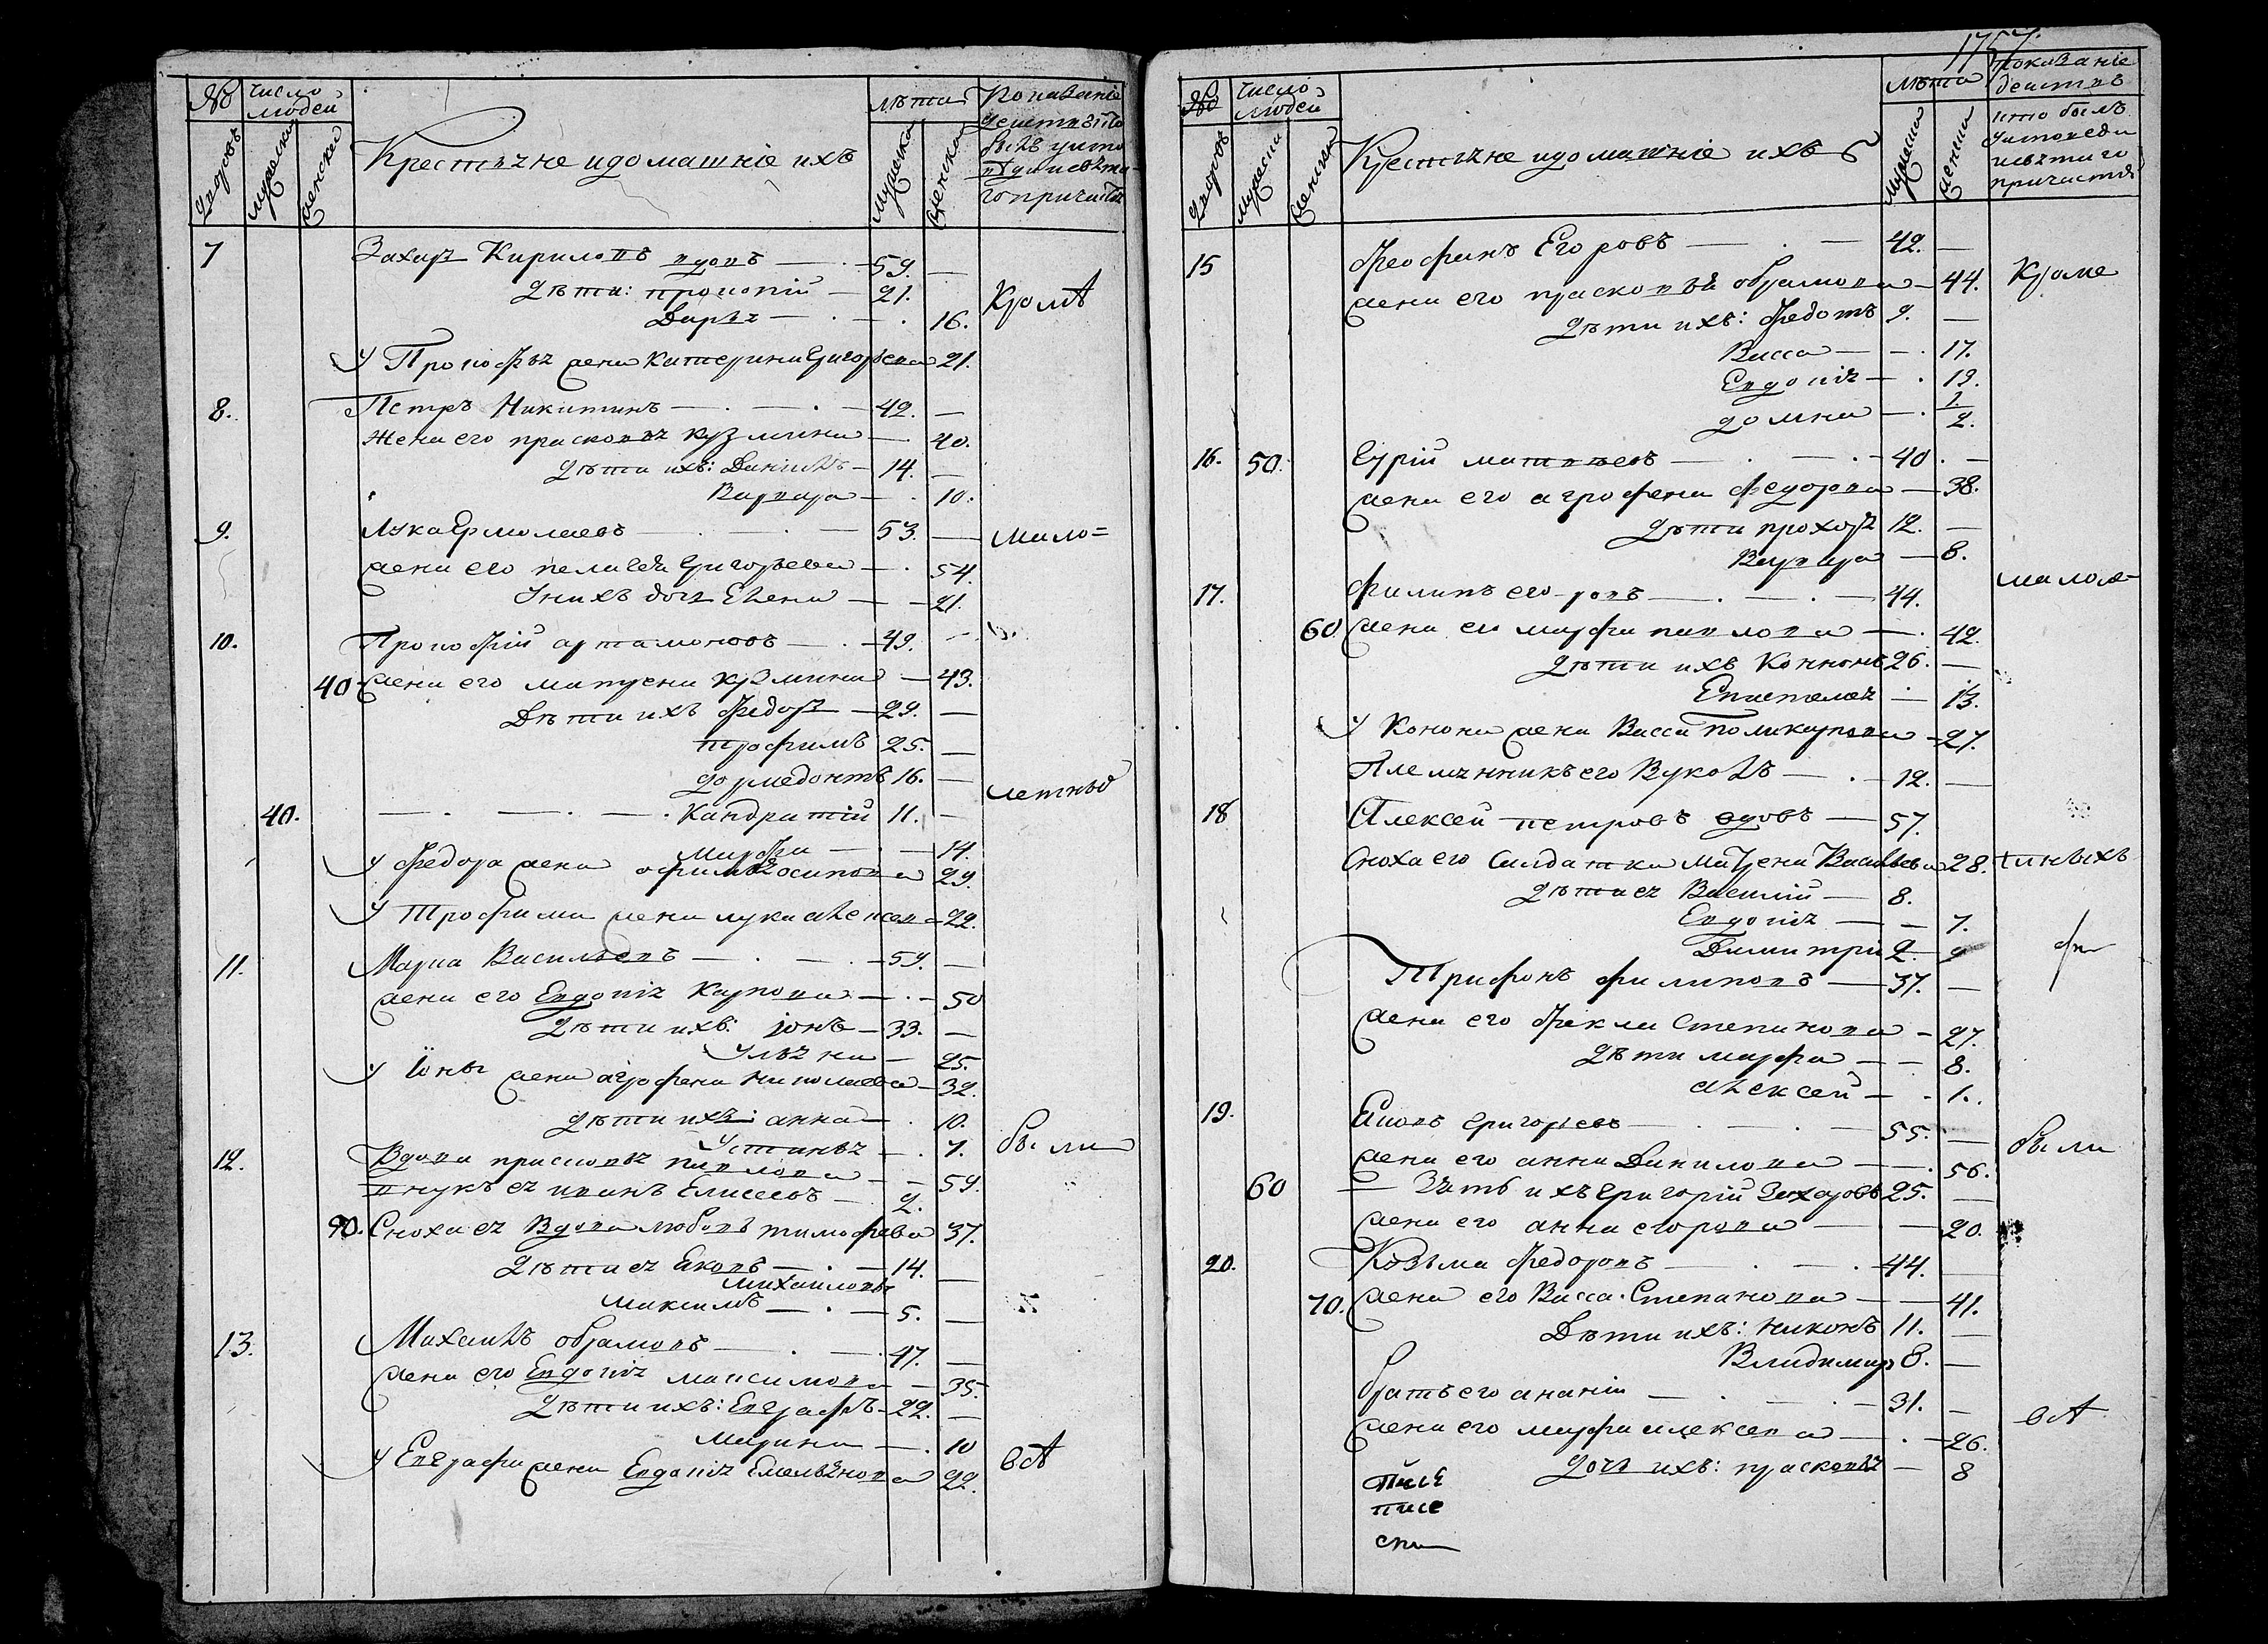 № число людей
лѣта
дворовъ мужеска женска
Крестьяне и домашніе ихъ
мужеска женска
7 Захаръ Кириловъ вдовъ — 59. —
дѣти: прокопій — 21.
Дарья — 16.
Кромѣ
У Прокофья жена катерина григорьева 21.
8. Петръ Никитинъ — 42. —
Жена его прасковья кузмина — 40.
дѣти ихъ: Даніилъ — 14. —
Варвара — 10.
9. Лука Ермолаевъ — 53. —
мало=
жена его пелагея григорьева — 54.
У нихъ дочь Елена — 21.
10. Прокофій артамоновъ — 49. —
40 жена его матрена кузмина — 43.
Дѣти ихъ Федоръ — 29. —
трофимъ 25. —
дормедонтъ 16. —
летныхъ
40. Кандратій 11. —
Марфа — 14.
У Федора жена афимья осипова 29.
У Трофима жена лукия алексева 22.
11. Марка Васильевъ — 59. —
жена его Евдокия Карпова — 50
дѣти ихъ: іонъ — 33. —
Ульяна — 25.
У іоны жена аграфена николаева — 32.
дѣти ихъ: анна — 10.
Устинья — 7.
были
12. Вдова прасковья павлова — 59.
внукъ ея иванъ Елисеевъ — 2.
50. Сноха ея Вдова любовь тимофева 37.
дѣти ея Яковъ — 14. —
Михаиловы
максимъ — 5. —
13. Михаилъ абрамовъ — 47. —
жена его Евдокия максимова — 35.
дѣти ихъ: Евграфъ — 22. —
Марина — 10
всѣ
У Евграфа жена Евдокия Емельянова 22.
1757.
№ число людей
лѣта
показаніе действъ
дворовъ мужеска женска
Крестьяне и домашніе ихъ
мужеска женска
кто былъ у исповеди и святаго причастія
15 Феофанъ Егоровъ — 42. —
жена его прасковья абрамова — 44.
Кроме
дѣти ихъ: Федотъ 9. —
Васса — 17.
Евдокия — 13.
домна — 1/2.
16. 50. Гурій матвеевъ — 40. —
жена его аграфена федорова — 38.
дѣти прохоръ 12. —
Варвара — 8.
малол=
17. Филипъ егоровъ — 44.
60 жена его марфа павлова — 42.
дѣти ихъ Кононъ 26. —
Епистемея — 13.
У Конона жена Васса Поликарпова — 27.
Племянникъ его Вуколъ — 12. —
18 Алексей петровъ вдовъ — 57.
Сноха его Салдатка Матрена Васильева 28.
дѣти ея Василій — 8.
Евдокия — 7.
Димитрий 2.
Трифонъ филиповъ — 37. —
жена его Фекла Степанова — 27.
дѣти марфа — 8.
алексей — 1.
19. Яковъ григорьевъ — 55. —
были
жена его анна Данилова — 56.
60 Зять ихъ григорій Захаровъ 25. —
жена его анна егорова — 20.
20. Козьма Федоровъ — 44. —
70. жена его Васса Степанова — 41.
Дѣти ихъ: никонъ 11. —
Владимиръ 8. —
братъ его ананій — 31. —
всѣ
жена его марфа алексева — 26.
дочь ихъ: прасковья — 8